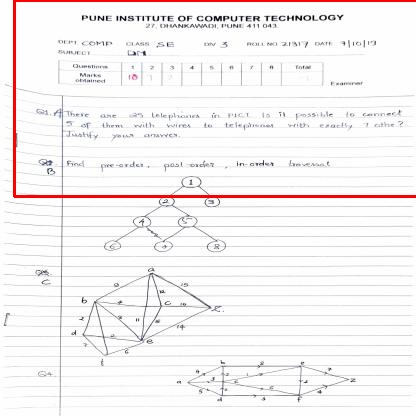 PUNE INSTITUTE OF COMPUTER TECHNOLOGY
27, DHANKAWADI, PUNE 411 043.
DEPT COMP CLASS SE DIV 3 ROLL NO 21317 DATE 7/10/19
SUBJECT DM
Questions 1 2 3 4 5 6 7 8 Total
Marks obtained 10
Examiner
Q1. A There are 25 telephones in PICT. Is it possible to connect
5 of them with wires to telephones with exactly 7 othe?
Justify your answer.
B Find pre-order, post-order, in-order traversal
1
2 3
4 5
6 8
C
a
9 12 15
b c 10 z
2 3 11 14
d e
7 6
f
Q4.
b e
a z
d f